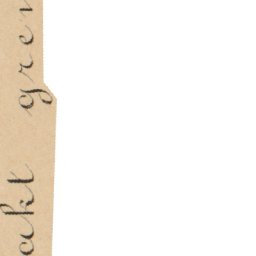 akt gren